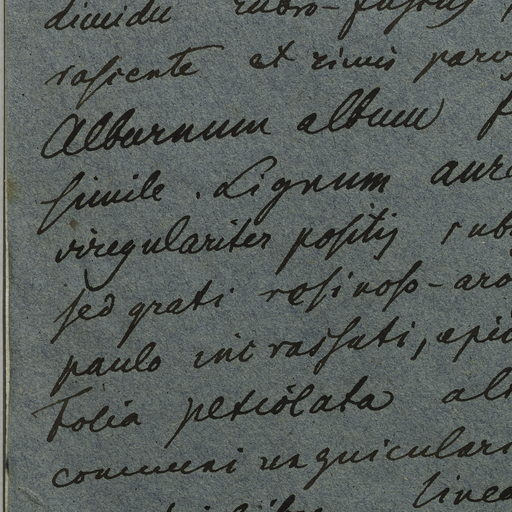 dimidii rubro-fuscus
rasiente et rimis parv
Alburnum album f
simile. Lignum aure
irregulariter positis sub
sed grati resinoso-aro
paulo incrassati, apic
Folia petiolata alt
communi unguiculari
linea